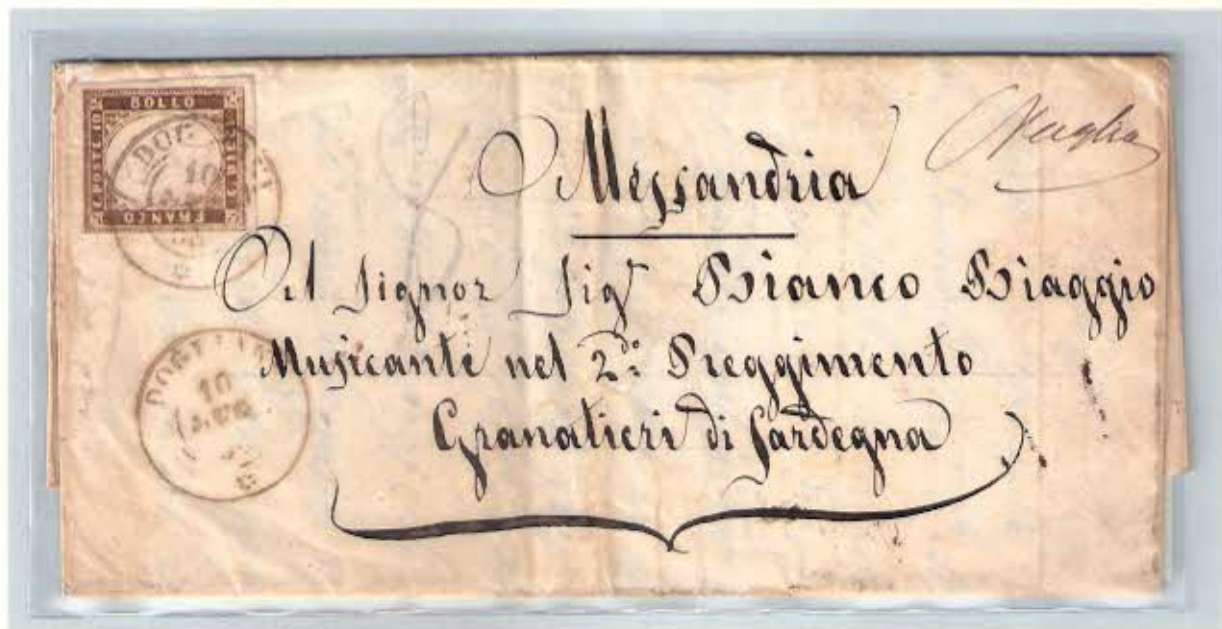 FRANCO BOLLO
C. POSTE 10
C. DIECI 10
Alessandria
Al Signor Sig.r Bianco Biaggio
Musicante nel 2.do Reggimento
Granatieri di Sardegna
DOGLIANI
10